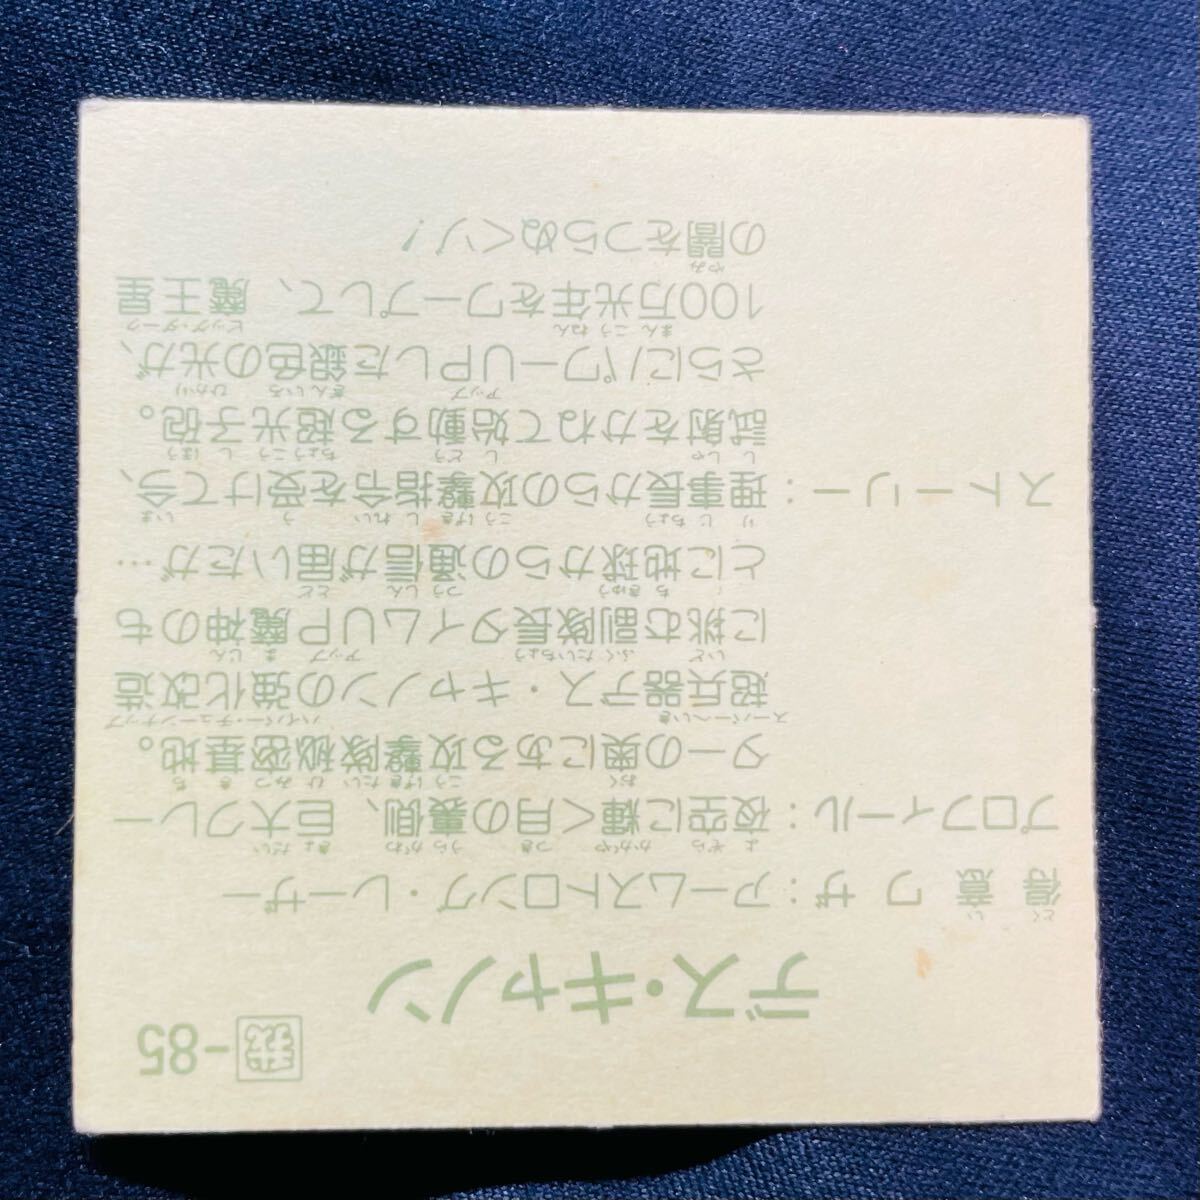 我-85
デス・キャノン
得意ワザ：アームストロング・レーザー
プロフィール：夜空に輝く月の裏側、巨大クレー
ターの奥にある攻撃隊秘密基地。
超兵器デス・キャノンの強化改造
に挑む副隊長タイムUP魔神のも
とに地球からの通信が届いたが…
ストーリー：理事長からの攻撃指令を受けて今、
試射をかねて始動する超光子砲。
さらにパワーUPした銀色の光が、
100万光年をワープして、魔王星
の闇をつらぬくゾ！